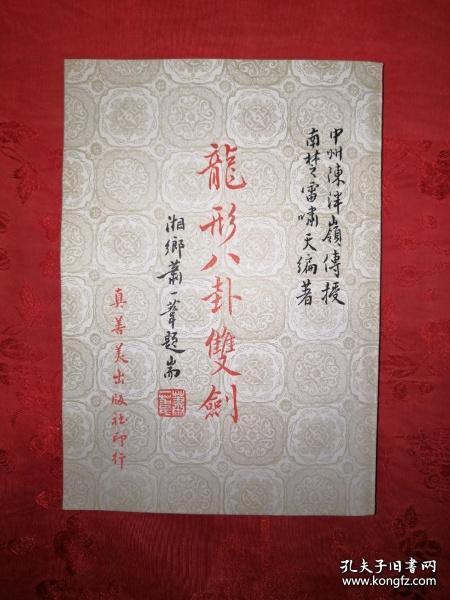 中州陳泮嶺傳授
南林雷嘯天編著
龍形八卦雙劍
湘鄉蕭一葦題耑
真善美出版社印行
孔夫子旧书网
www.kongfz.com